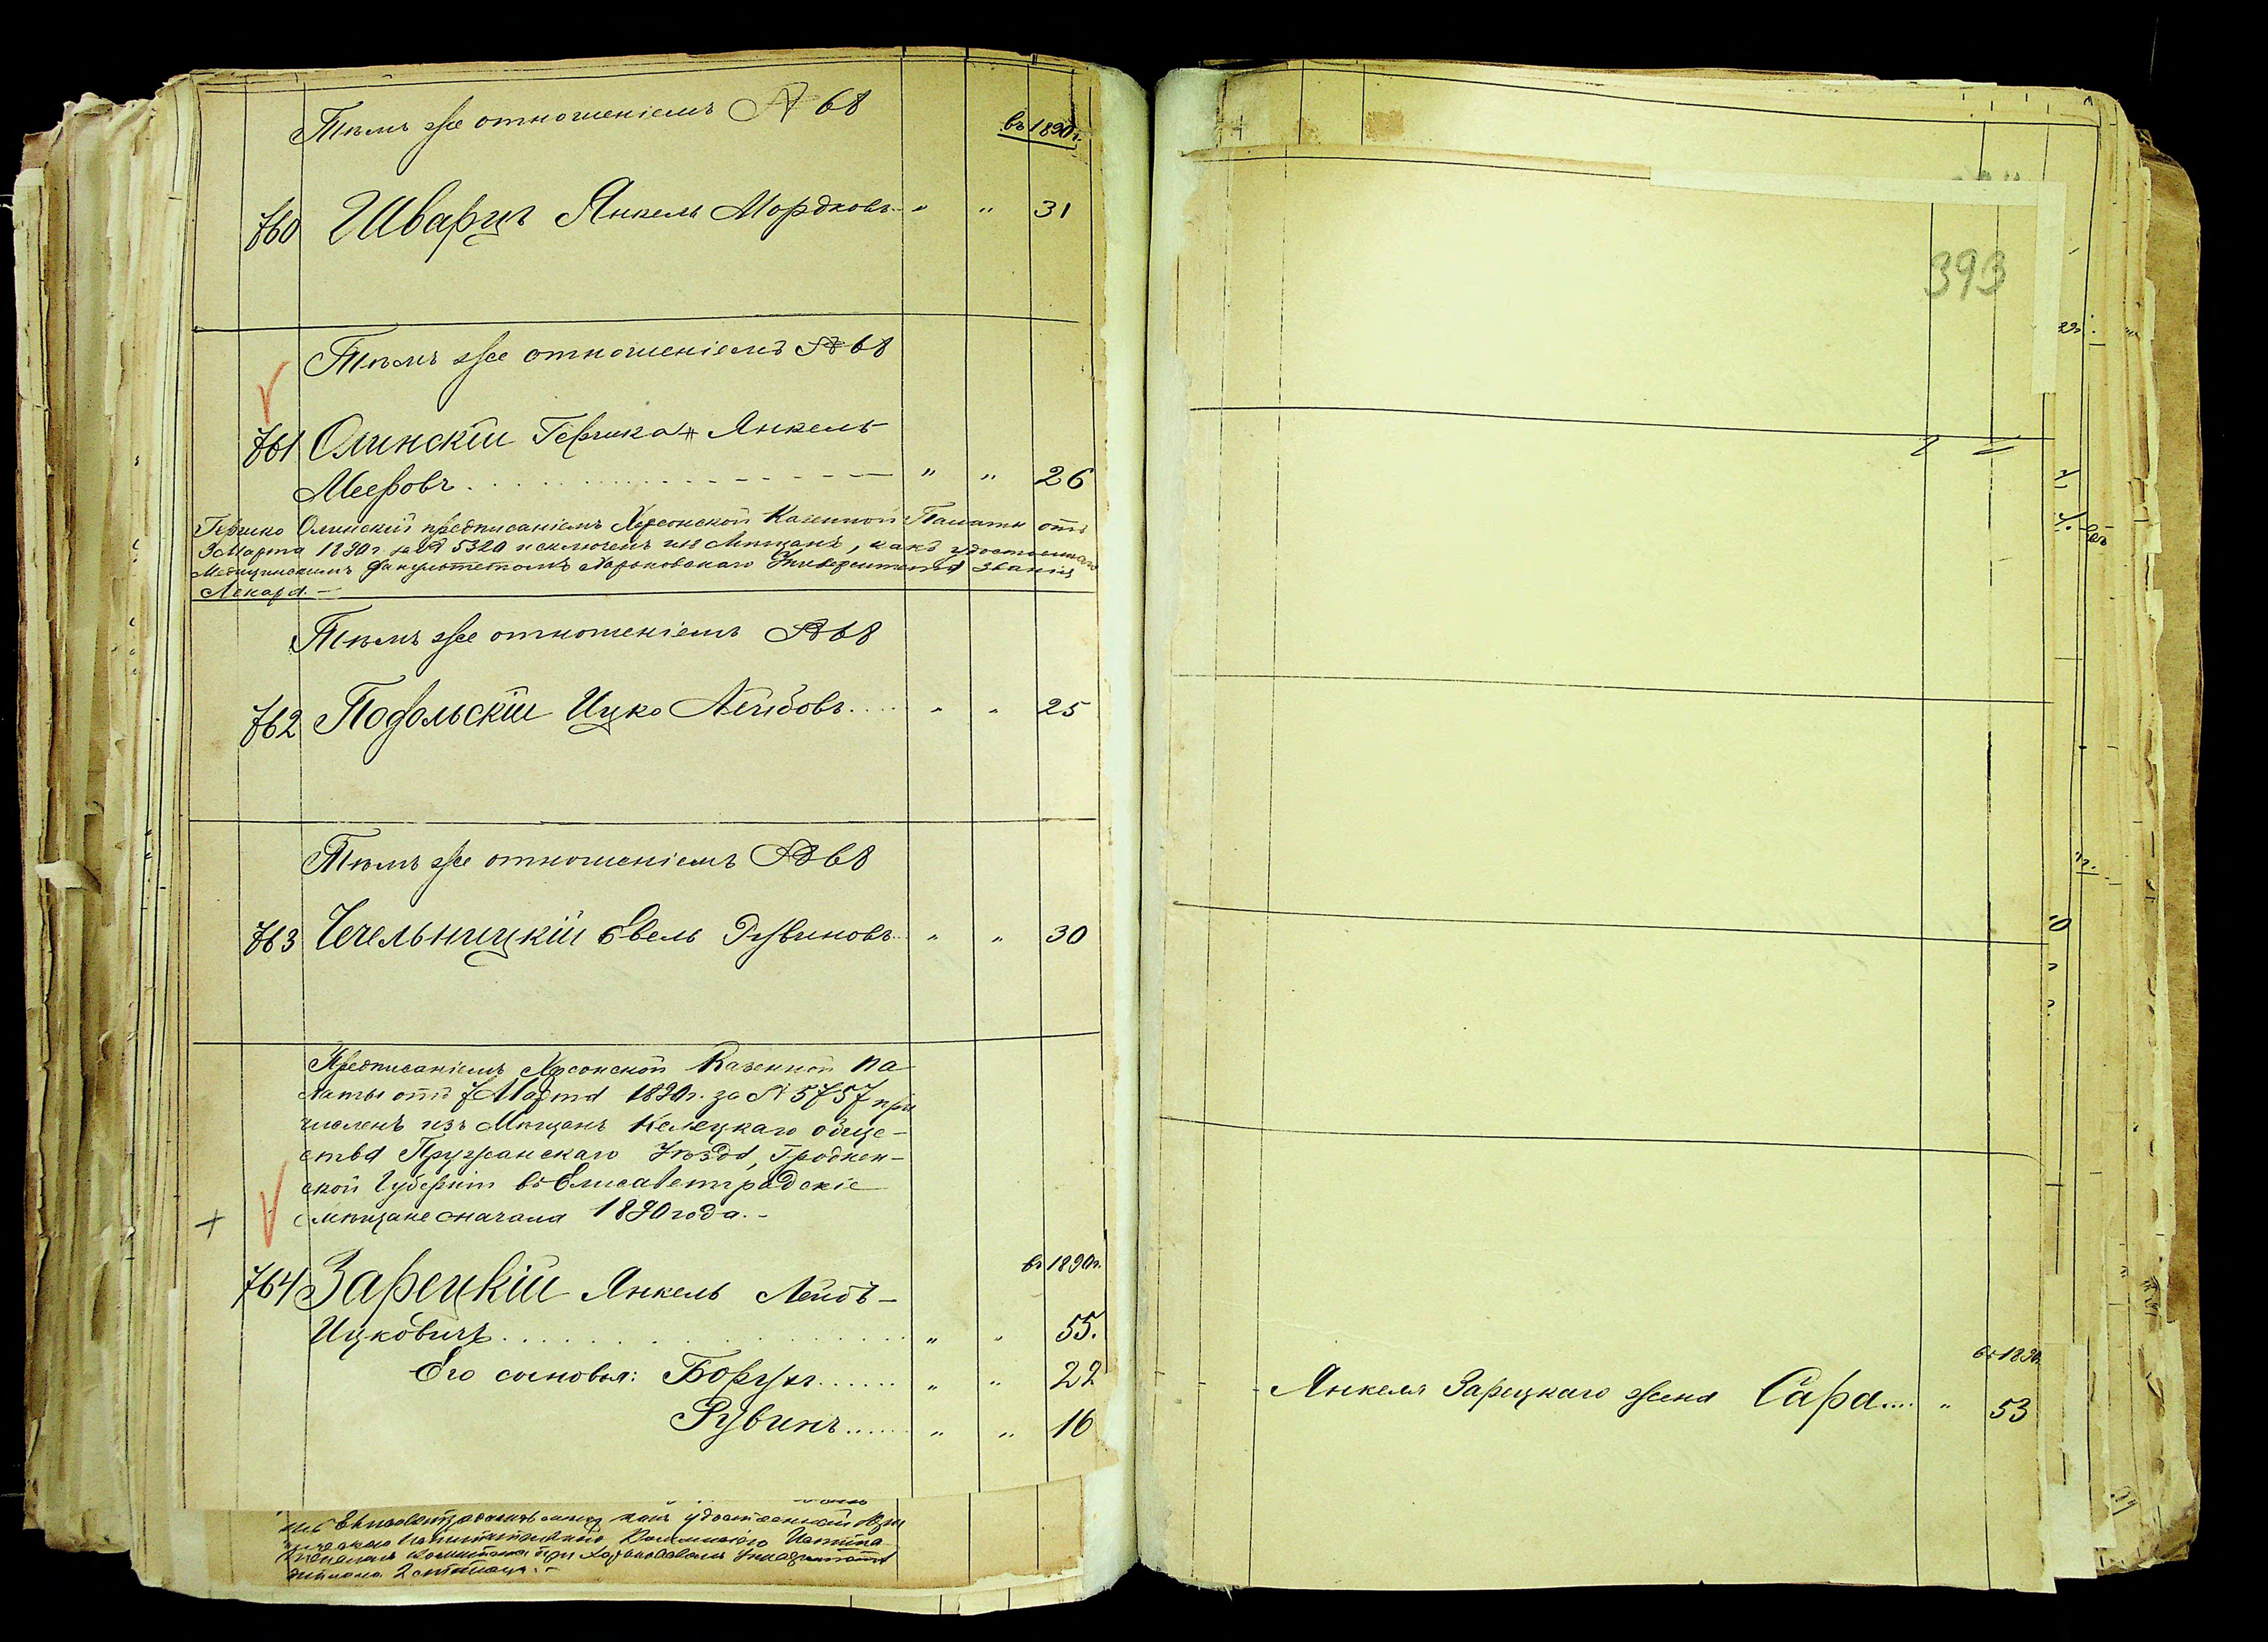 Тѣмъ же отношеніемъ № 68
въ 1890 г.
760 Шварцъ Янкель Мордковъ " " 31
Тѣмъ же отношеніемъ № 68
761 Олинскій Гершко Янкель-
Мееровъ . . . . " " 26
Гершко Олинскій предписаніемъ Херсонской Казенной Палаты отъ
3 Марта 1890 г. за № 5320 исключенъ изъ Мѣщанъ, какъ удостоеннаго
Медицинскимъ факультетомъ Харьковскаго Университета званія
Лекаря. —
Тѣмъ же отношеніемъ № 68
762 Подольскій Ицко Лейбовъ.... " " 25
Тѣмъ же отношеніемъ № 68
763 Чечельницкій Евель Рувиновъ.. " " 30
Предписаніемъ Херсонской Казенной Па
латы отъ 7 Марта 1890 г. за № 5757 при
численъ изъ Мѣщанъ Селецкаго обще-
ства Пружанскаго Уѣзда, Гроднен-
ской Губерніи въ Елисаветградскіе
мѣщане сначала 1890 года. -
въ 1890 г.
764 Зарецкій Янкель Лейбъ-
Ицковичъ . . . . " " 55.
Его сыновья: Борухъ...... " " 22
Рувинъ...... " " 16
какъ удостоенный
при Харьковскомъ
393
въ 1890
Янкеля Зарецкаго жена Сара.... " 53